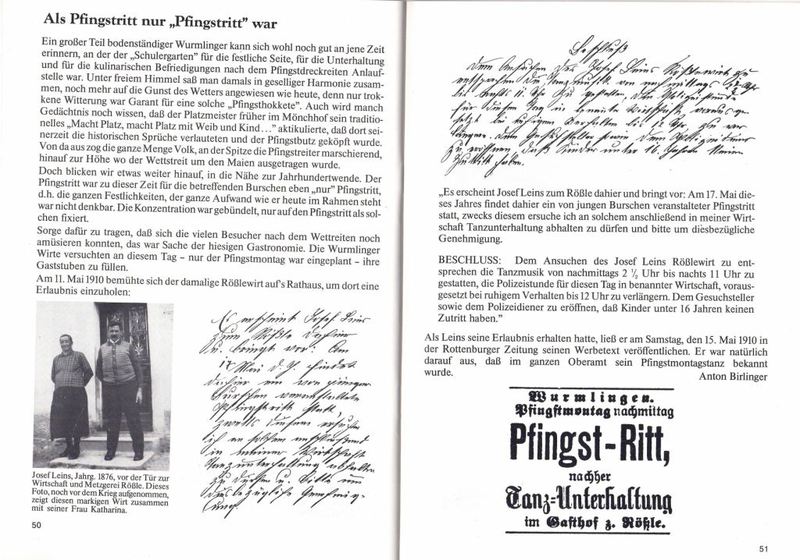 Als Pfingstritt nur „Pfingstritt” war
Ein großer Teil bodenständiger Wurmlinger kann sich wohl noch gut an jene Zeit
erinnern, an der der „Schulergarten” für die festliche Seite, für die Unterhaltung
und für die kulinarischen Befriedigungen nach dem Pfingstdreckreiten Anlauf-
stelle war. Unter freiem Himmel saß man damals in geselliger Harmonie zusam-
men, noch mehr auf die Gunst des Wetters angewiesen wie heute, denn nur trok-
kene Witterung war Garant für eine solche „Pfingsthokkete”. Auch wird manch
Gedächtnis noch wissen, daß der Platzmeister früher im Mönchhof sein traditio-
nelles „Macht Platz, macht Platz mit Weib und Kind...” aktikulierte, daß dort sei-
nerzeit die historischen Sprüche verlauteten und der Pfingstbutz geköpft wurde.
Von da aus zog die ganze Menge Volk, an der Spitze die Pfingstreiter marschierend,
hinauf zur Höhe wo der Wettstreit um den Maien ausgetragen wurde.
Doch blicken wir etwas weiter hinauf, in die Nähe zur Jahrhundertwende. Der
Pfingstritt war zu dieser Zeit für die betreffenden Burschen eben „nur” Pfingstritt,
d.h. die ganzen Festlichkeiten, der ganze Aufwand wie er heute im Rahmen steht
war nicht denkbar. Die Konzentration war gebündelt, nur auf den Pfingstritt als sol-
chen fixiert.
Sorge dafür zu tragen, daß sich die vielen Besucher nach dem Wettreiten noch
amüsieren konnten, das war Sache der hiesigen Gastronomie. Die Wurmlinger
Wirte versuchten an diesem Tag – nur der Pfingstmontag war eingeplant – ihre
Gaststuben zu füllen.
Am 11. Mai 1910 bemühte sich der damalige Rößlewirt auf's Rathaus, um dort eine
Erlaubnis einzuholen:
Es erscheint Josef Leins
zum Rößle dahier
u. bringt vor: Am
17. Mai d. J. findet
dahier ein von jungen
Burschen veranstalteter
Pfingstritt statt,
zwecks diesem ersuche
ich an solchem anschließend
in meiner Wirtschaft
Tanzunterhaltung abhalten
zu dürfen u. bitte um
diesbezügliche Genehmig-
ung.
Josef Leins, Jahrg. 1876, vor der Tür zur
Wirtschaft und Metzgerei Rößle. Dieses
Foto, noch vor dem Krieg aufgenommen,
zeigt diesen markigen Wirt zusammen
mit seiner Frau Katharina.
50
Beschluß
Dem Ansuchen des Josef Leins Rößlewirt zu
entsprechen die Tanzmusik von nachmittags 2 ½ Uhr
bis nachts 11 Uhr zu gestatten, die Polizeistunde
für diesen Tag in benannter Wirtschaft, vorausge-
setzt bei ruhigem Verhalten bis 12 Uhr zu ver-
längern. Dem Gesuchsteller sowie dem Polizeidiener
zu eröffnen, daß Kinder unter 16 Jahren keinen
Zutritt haben.
„Es erscheint Josef Leins zum Rößle dahier und bringt vor: Am 17. Mai die-
ses Jahres findet dahier ein von jungen Burschen veranstalteter Pfingstritt
statt, zwecks diesem ersuche ich an solchem anschließend in meiner Wirt-
schaft Tanzunterhaltung abhalten zu dürfen und bitte um diesbezügliche
Genehmigung.
BESCHLUSS: Dem Ansuchen des Josef Leins Rößlewirt zu ent-
sprechen die Tanzmusik von nachmittags 2 ½ Uhr bis nachts 11 Uhr zu
gestatten, die Polizeistunde für diesen Tag in benannter Wirtschaft, voraus-
gesetzt bei ruhigem Verhalten bis 12 Uhr zu verlängern. Dem Gesuchsteller
sowie dem Polizeidiener zu eröffnen, daß Kinder unter 16 Jahren keinen
Zutritt haben.”
Als Leins seine Erlaubnis erhalten hatte, ließ er am Samstag, den 15. Mai 1910 in
der Rottenburger Zeitung seinen Werbetext veröffentlichen. Er war natürlich
darauf aus, daß im ganzen Oberamt sein Pfingstmontagstanz bekannt
wurde.
Anton Birlinger
Wurmlingen.
Pfingstmontag nachmittag
Pfingst-Ritt,
nachher
Tanz-Unterhaltung
im Gasthof z. Rößle.
51